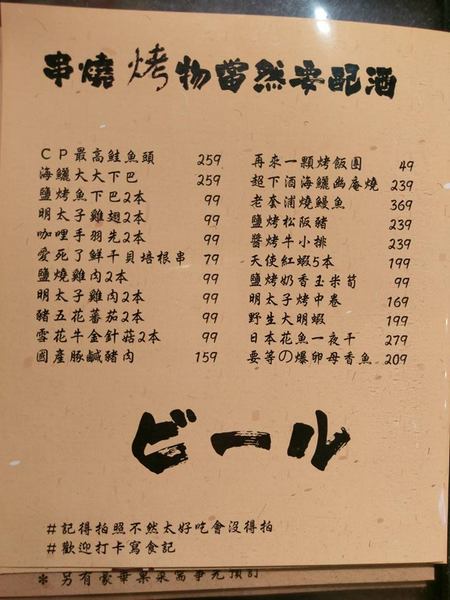 串燒烤物當然要配酒
ＣＰ最高鮭魚頭 259
海鱺大大下巴 259
鹽烤魚下巴2本 99
明太子雞翅2本 99
咖哩手羽先2本 99
愛死了鮮干貝培根串 79
鹽燒雞肉2本 99
明太子雞肉2本 99
豬五花蕃茄2本 99
雪花牛金針菇2本 99
國產豚鹹豬肉 159
再來一顆烤飯團 49
超下酒海鱺幽庵燒 239
老套浦燒鰻魚 369
鹽烤松阪豬 239
醬烤牛小排 239
天使紅蝦5本 199
鹽烤奶香玉米筍 99
明太子烤中卷 169
野生大明蝦 199
日本花魚一夜干 279
要等の爆卵母香魚 209
ビール
＃記得拍照不然太好吃會沒得拍
＃歡迎打卡寫食記
＊另有豪華菓菜需事先預訂